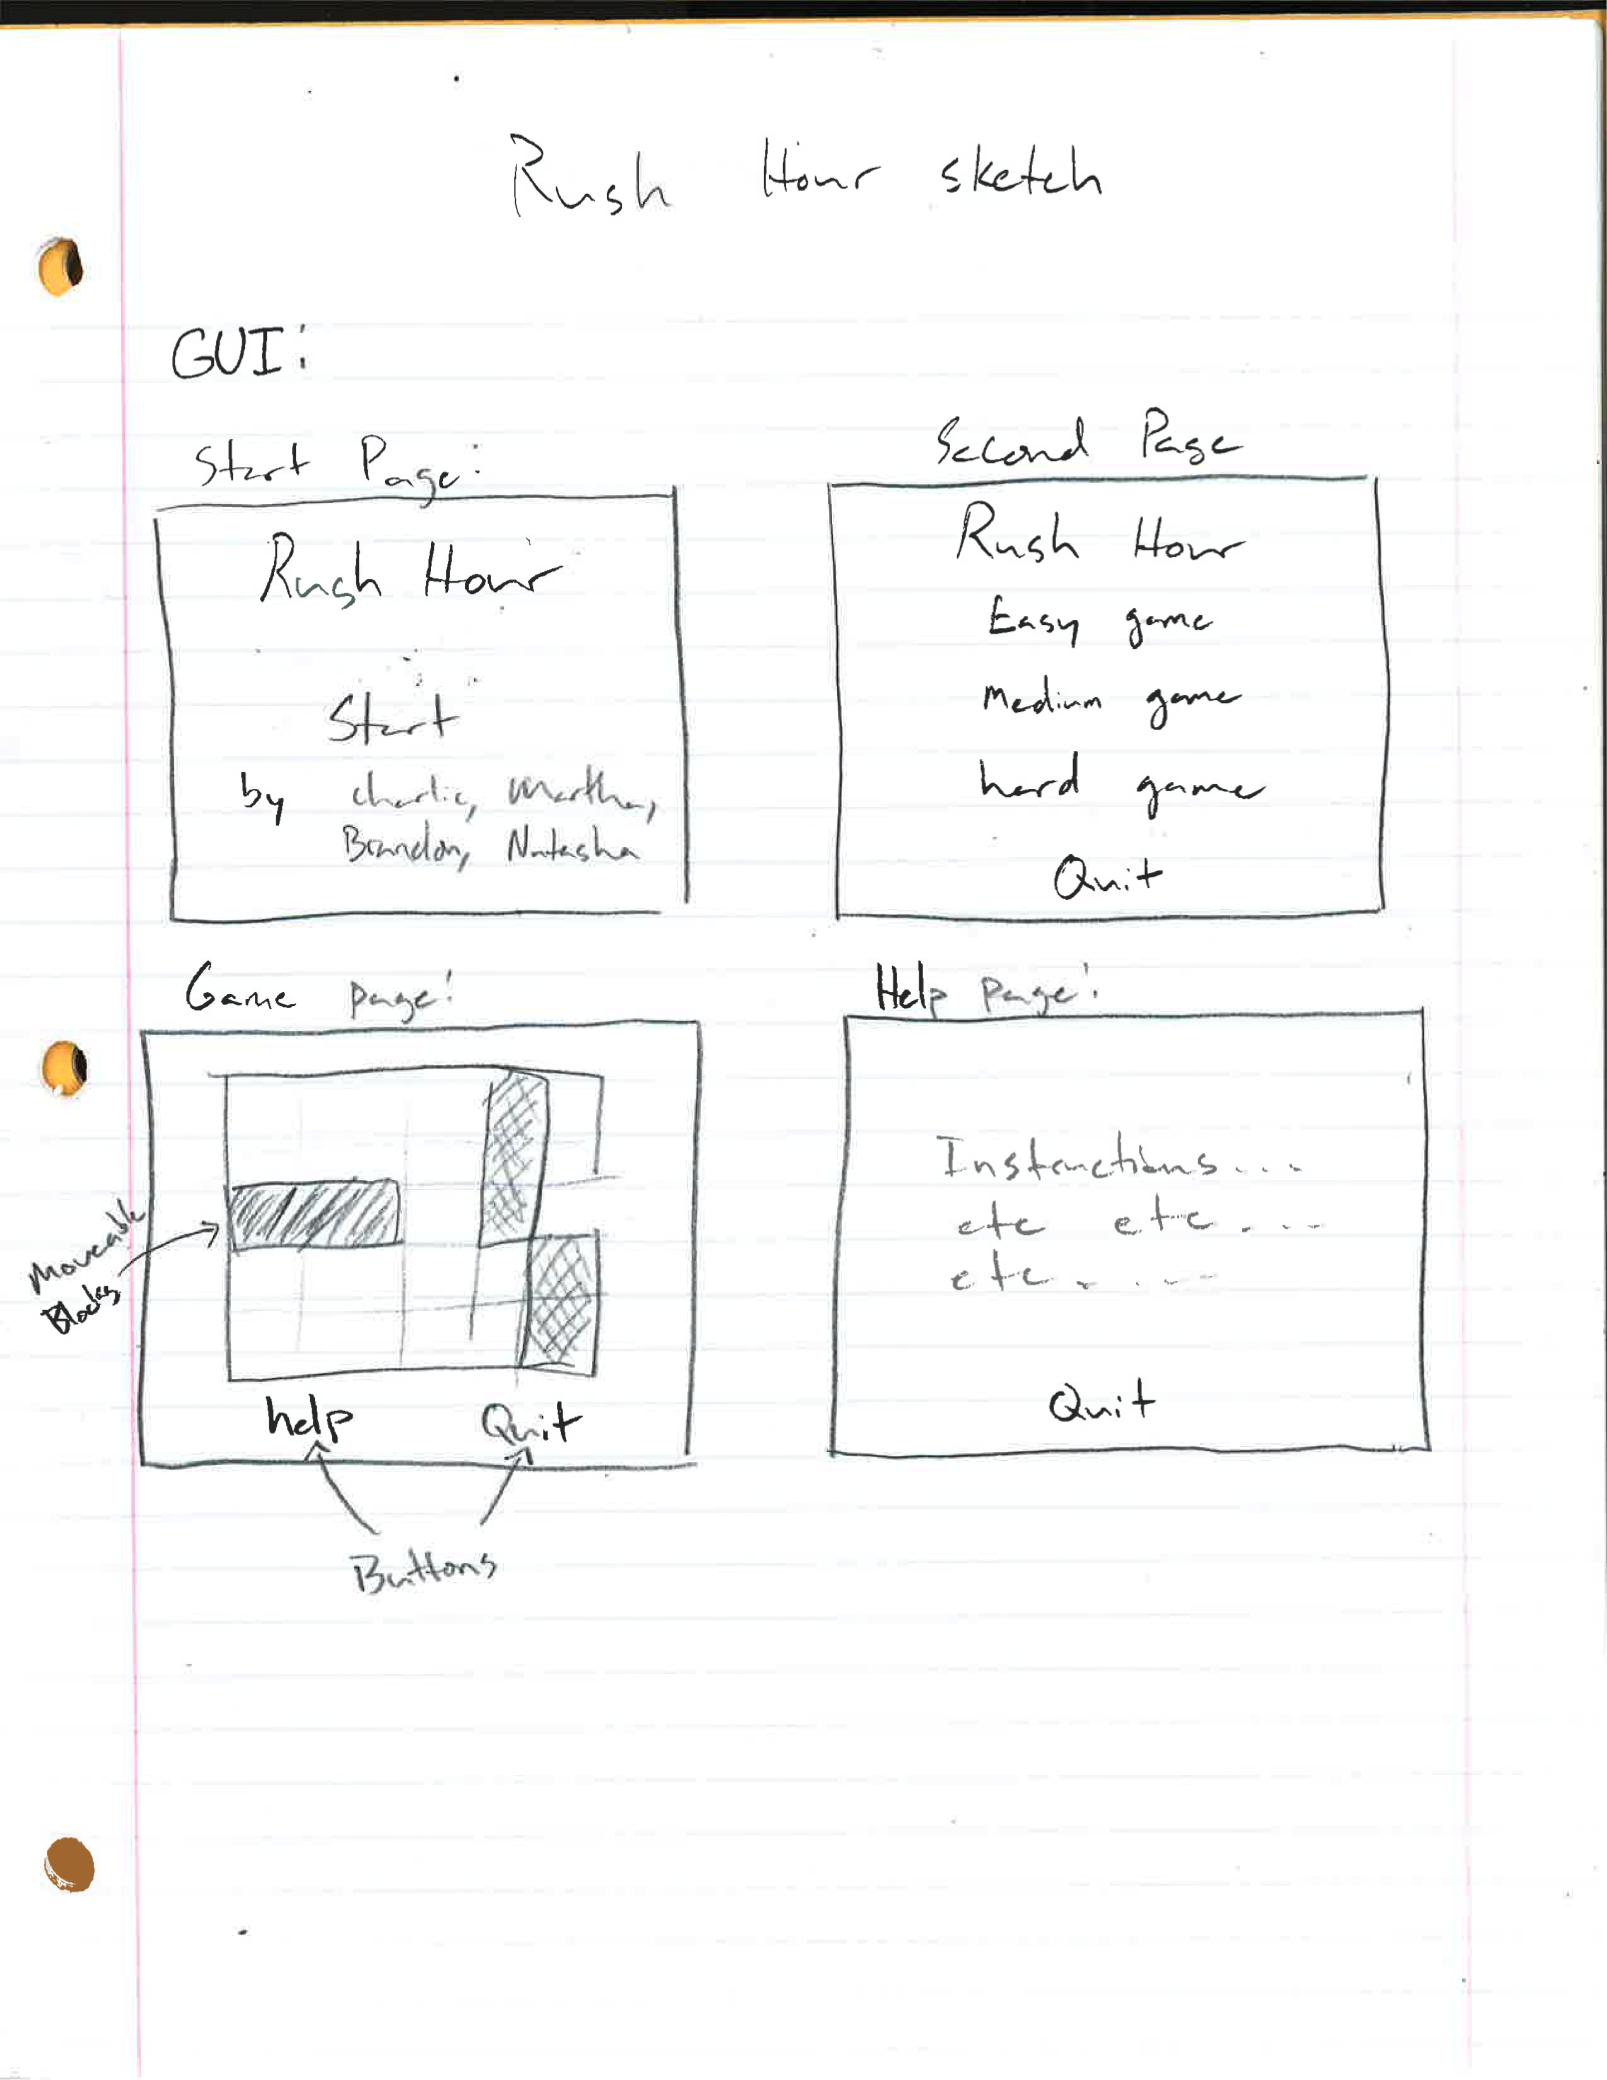 Rush Hour sketch
GUI:
Start Page:
Rush Hour
Start
by charlie, Martha,
Brandon, Natasha
Second Page
Rush Hour
Easy game
Medium game
hard game
Quit
Game page:
Moveable
Blocks
help Quit
Buttons
Help page:
Instructions...
etc etc....
etc.....
Quit